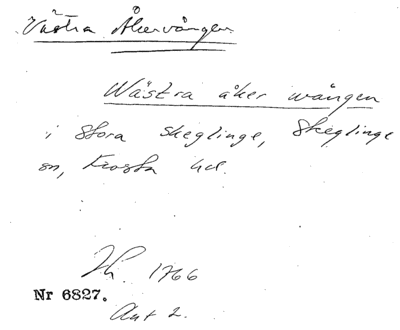 Västra Åkervången
Wästra åker wången
i Stora Skeglinge, Skeglinge
sn, Frosta hd.
1766
Nr 6827.
Akt 2.